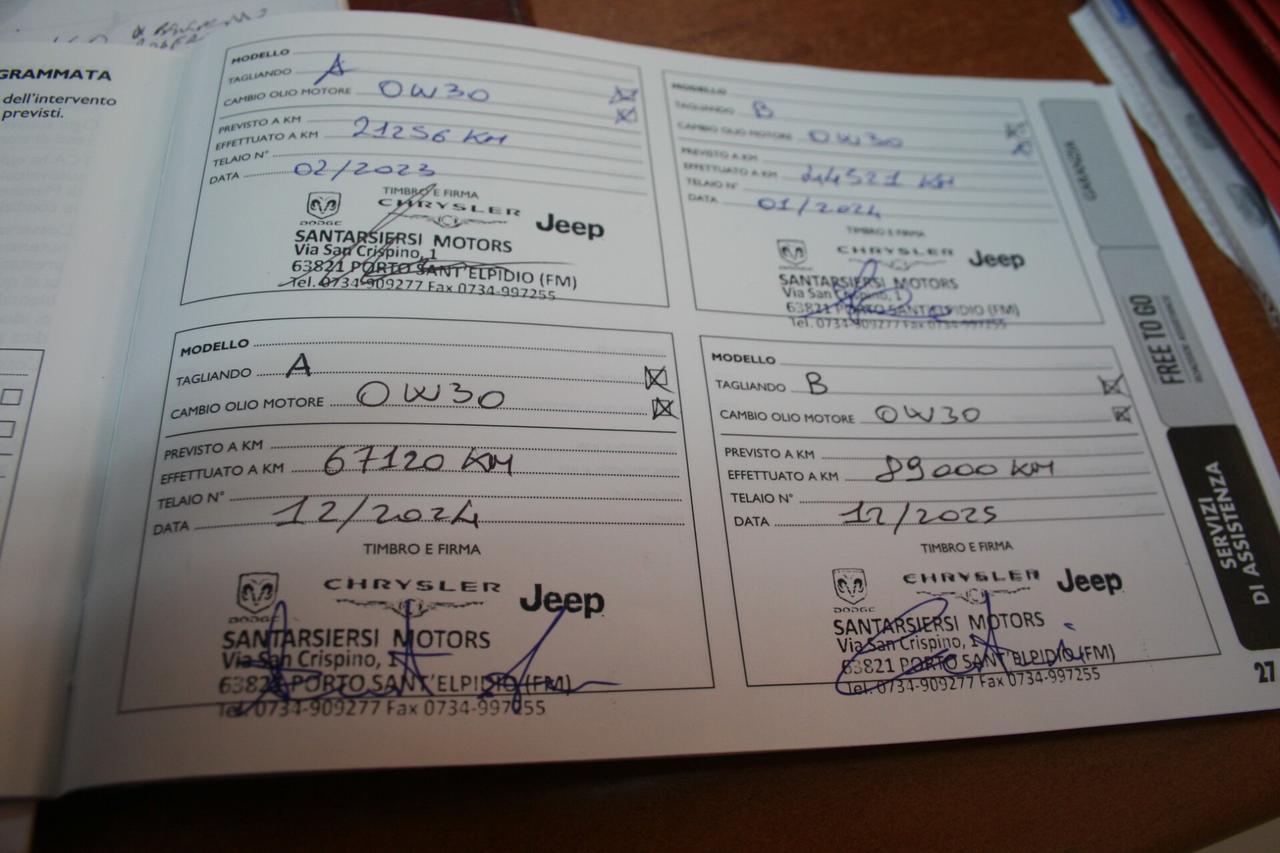 GRAMMATA
dell'intervento
previsti.
MODELLO
TAGLIANDO A
CAMBIO OLIO MOTORE 0W30
PREVISTO A KM
EFFETTUATO A KM 21256 KM
TELAIO N°
DATA 02/2023
TIMBRO E FIRMA
DODGE CHRYSLER Jeep
SANTARSIERSI MOTORS
Via San Crispino, 1
63821 PORTO SANT'ELPIDIO (FM)
Tel. 0734-909277 Fax 0734-997255
MODELLO
TAGLIANDO B
CAMBIO OLIO MOTORE 0W30
PREVISTO A KM
EFFETTUATO A KM 44521 KM
TELAIO N°
DATA 01/2024
TIMBRO E FIRMA
CHRYSLER Jeep
SANTARSIERSI MOTORS
Via San Crispino, 1
63821 PORTO SANT'ELPIDIO (FM)
Tel. 0734-909277 Fax 0734-997255
MODELLO
TAGLIANDO A
CAMBIO OLIO MOTORE 0W30
PREVISTO A KM
EFFETTUATO A KM 67120 KM
TELAIO N°
DATA 12/2024
TIMBRO E FIRMA
DODGE CHRYSLER Jeep
SANTARSIERSI MOTORS
Via San Crispino, 1
63821 PORTO SANT'ELPIDIO (FM)
Tel. 0734-909277 Fax 0734-997255
MODELLO
TAGLIANDO B
CAMBIO OLIO MOTORE 0W30
PREVISTO A KM
EFFETTUATO A KM 89000 KM
TELAIO N°
DATA 12/2025
TIMBRO E FIRMA
DODGE CHRYSLER Jeep
SANTARSIERSI MOTORS
Via San Crispino, 1
63821 PORTO SANT'ELPIDIO (FM)
Tel. 0734-909277 Fax 0734-997255
GARANZIA
FREE TO GO
SERVIZI
DI ASSISTENZA
27